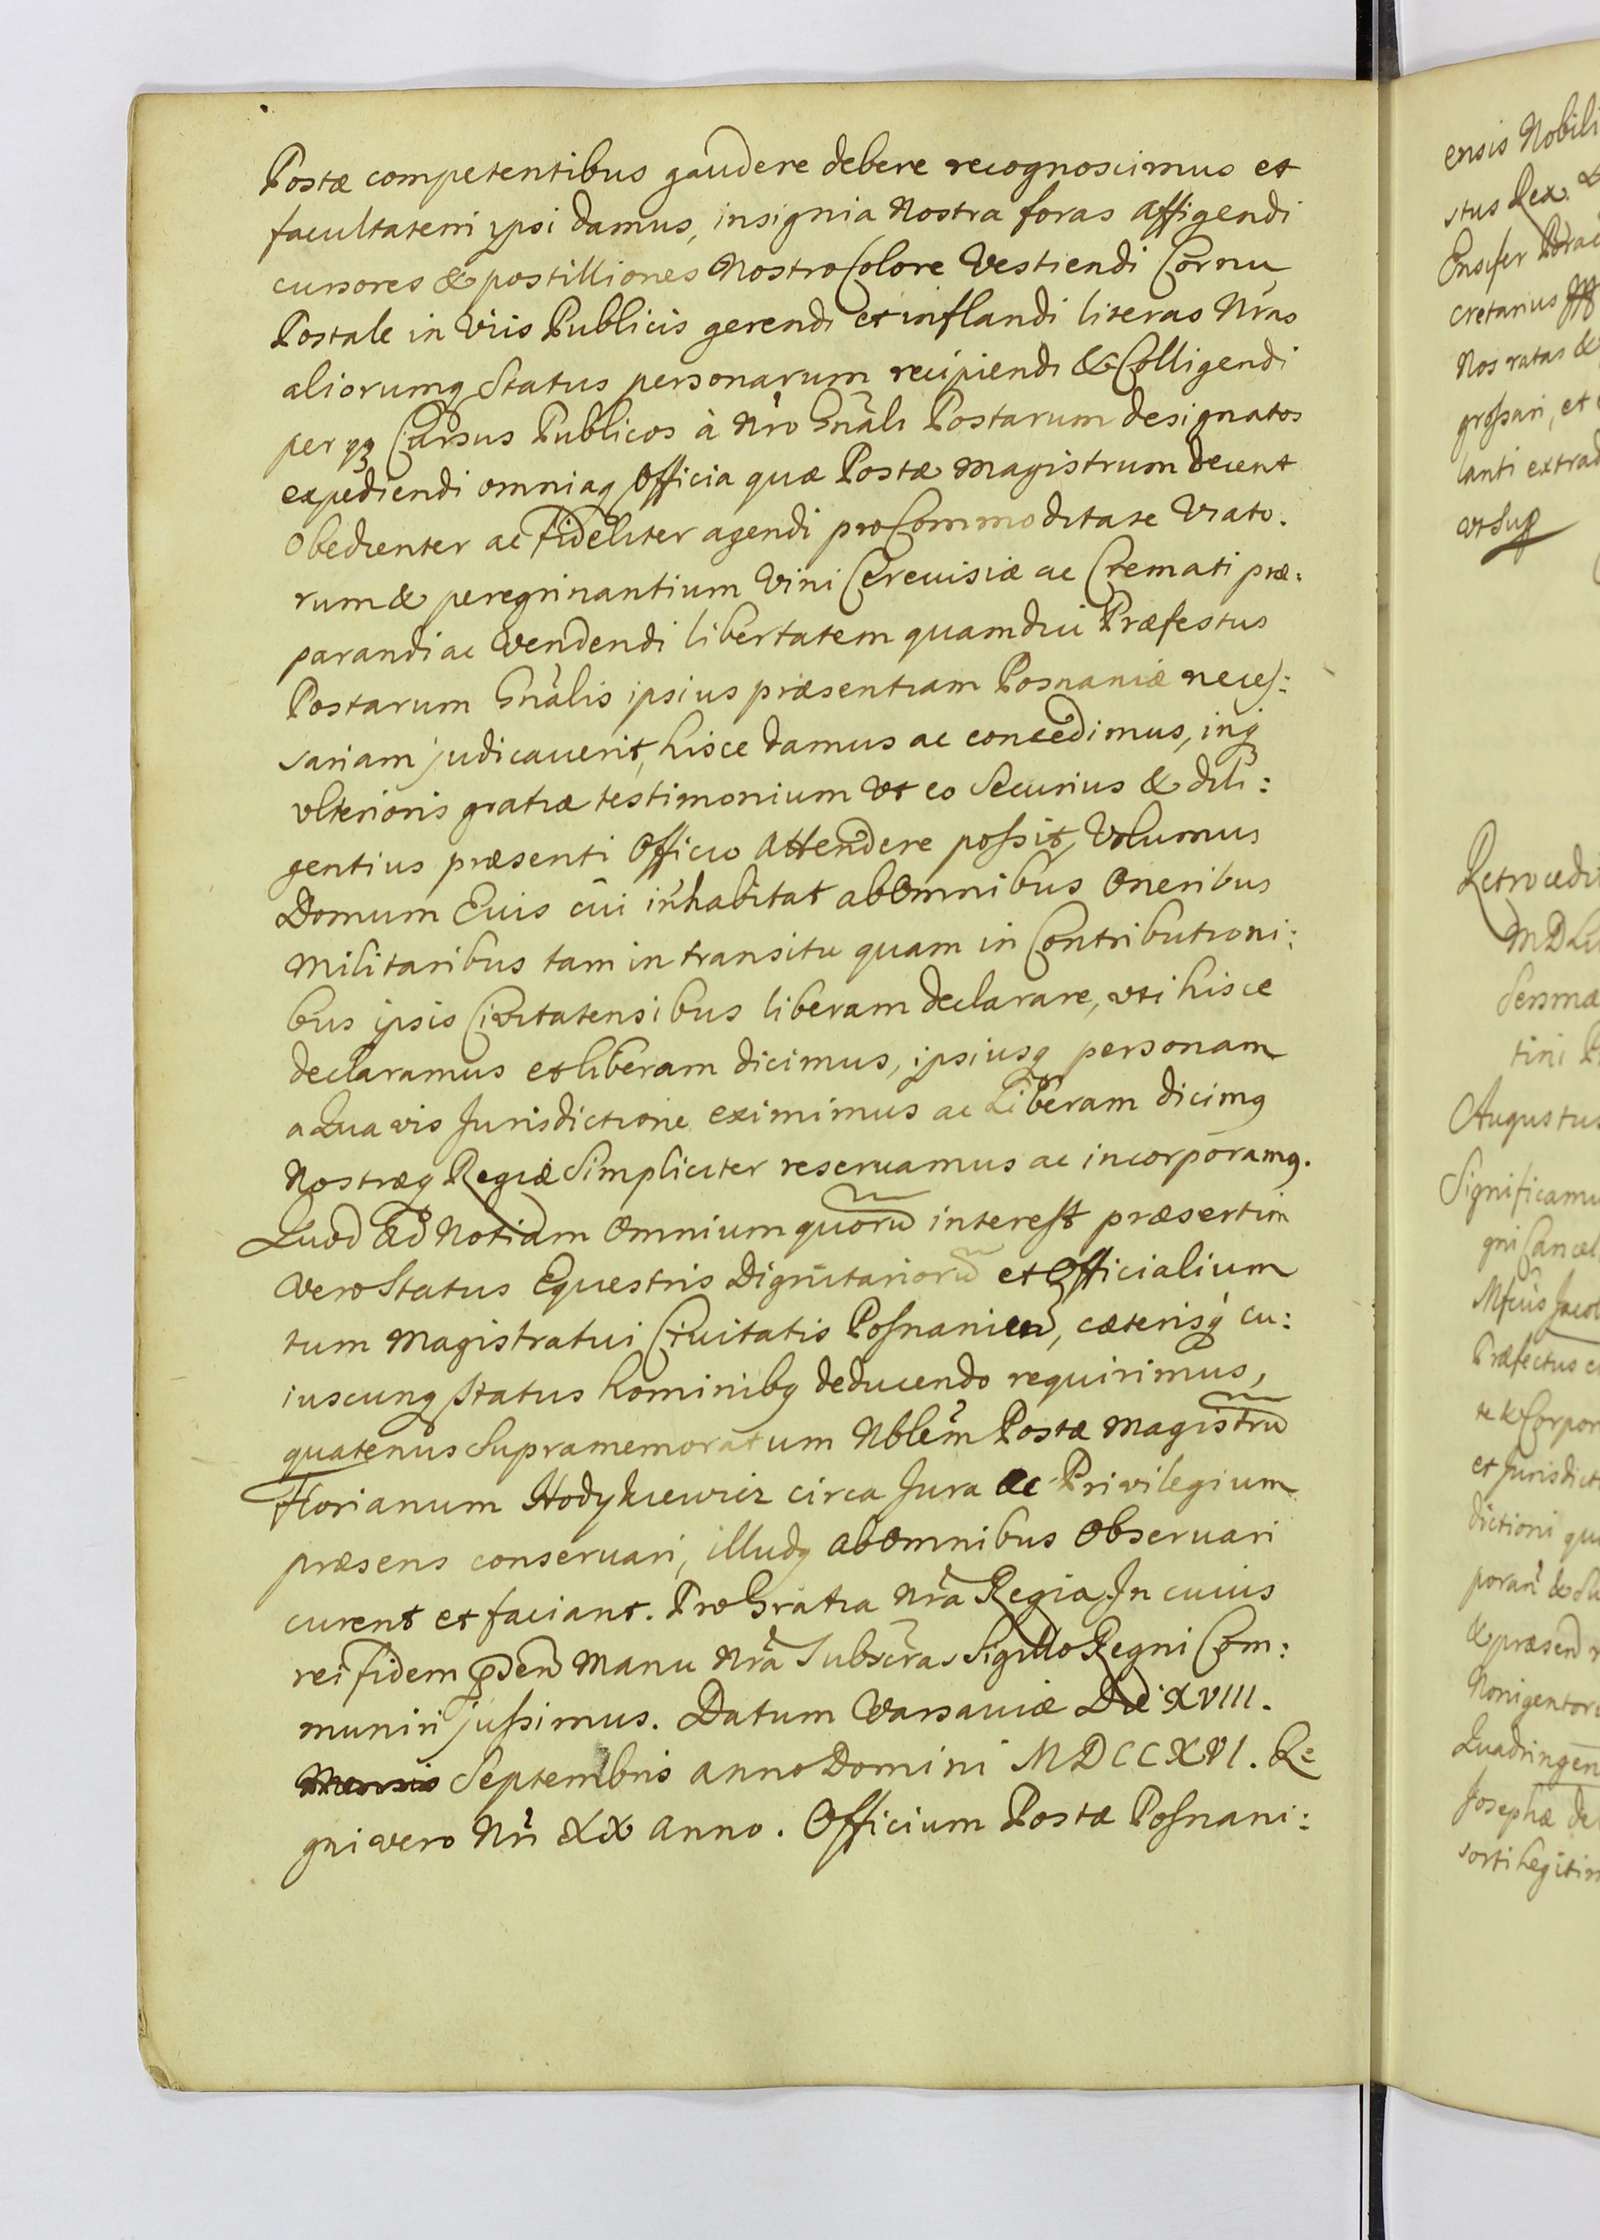 Postæ competentibus gaudere debere recognoscimus et
facultatem ipsi damus, insignia Nostra foras affigendi
cursores & postilliones Nostro Colore Vestiendi Cornu
Postale in Viis Publicis gerendi et inflandi literas Nras
aliorumq Status personarum recipiendi & Colligendi
per Cursus Publicos à Nro Gnali Postarum designatos
expediendi omniaq Officia quæ Postæ Magistrum decent
Obedienter ac fideliter agendi pro Commoditate Viato.
rum & peregrinantium Vini Cerevisiæ ac Cremati præ:
parandi ac Vendendi libertatem quamdiu Præfectus
Postarum Gnalis ipsius præsentiam Posnaniæ neces:
sariam judicauerit, hisce damus ac concedimus, inq
vlterioris gratiæ testimonium Vt eo Securius & dili:
gentius præsenti Officio Attendere possit, Volumus
Domum Eius cui inhabitat ab Omnibus Oneribus
Militaribus tam in transitu quam in Contributioni:
bus ipsis Civitatensibus liberam declarare, vti hisce
declaramus et liberam dicimus, ipsiusq personam
a Quavis Jurisdictione eximimus ac Liberam dicimq
Nostræq Regiæ Simpliciter reseruamus ac incorporamq.
Quod Ad Notiam Omnium quorũ interest præsertim
vero Status Equestris Dignitariorũ et Officialium
tum Magistratui Civitatis Posnanien, cæterisq cu:
iuscunq Status hominibq deducendo requirimus,
quatenus Supramemoratum Nblem Postæ Magistrũ
Florianum Hodykiewicz circa Jura ac Privilegium
præsens conseruari, illudq ab Omnibus Obseruari
curent et faciant. Pro Gratia Nra Regia. In cuius
rei fidem Manu Nra Subscras Sigillo Regni Com:
muniri jussimus. Datum Varsaviæ Die XVIII.
Mensis Septembris Anno Domini MDCCXVI. Re
gni vero Nri XX Anno. Officium Postæ Posnani:
ensis Nobili
stus Rex.
Ensifer
cretarius
Nos ratas &
grossari, et
lanti extrad
vt Sup
Augustus
Significamu
Præfectus
et Jurisdict
dictioni qu
Josephæ de